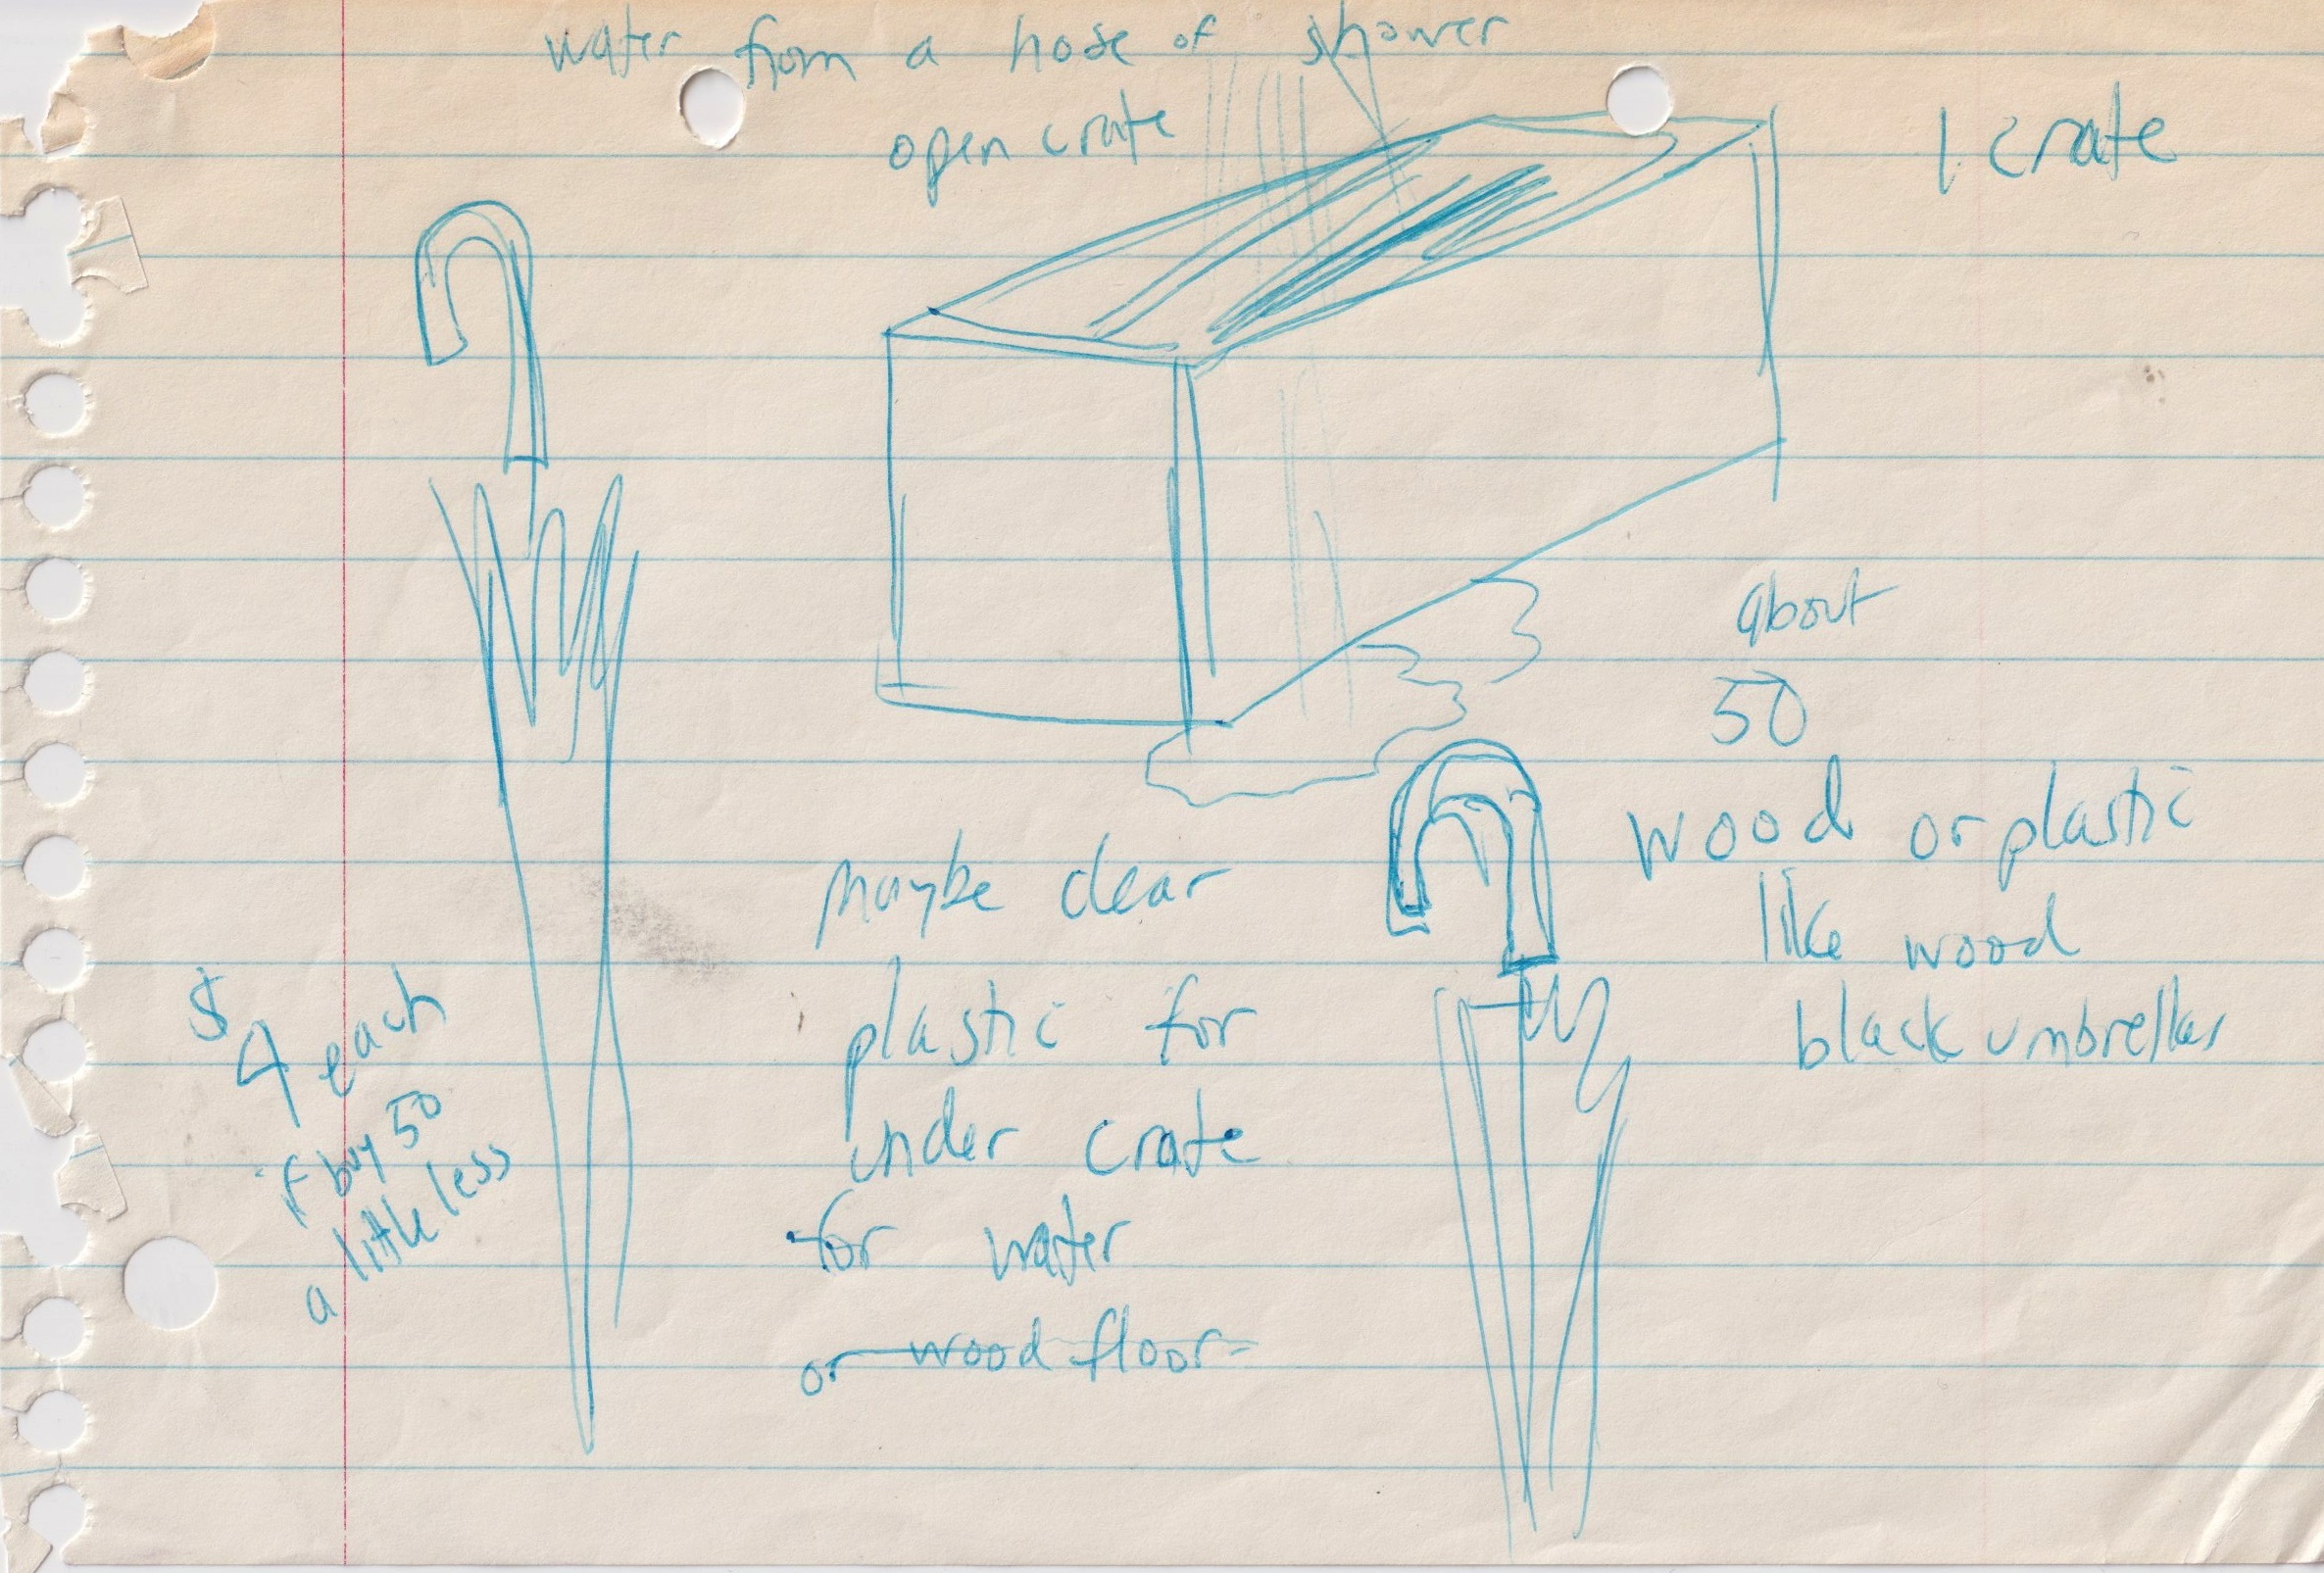 water from a hose of shower
open crate
1 crate
about
50
wood or plastic
like wood
black umbrellas
maybe clear
plastic for
under crate
for water
or wood floor
$4 each
if buy 50
a little less